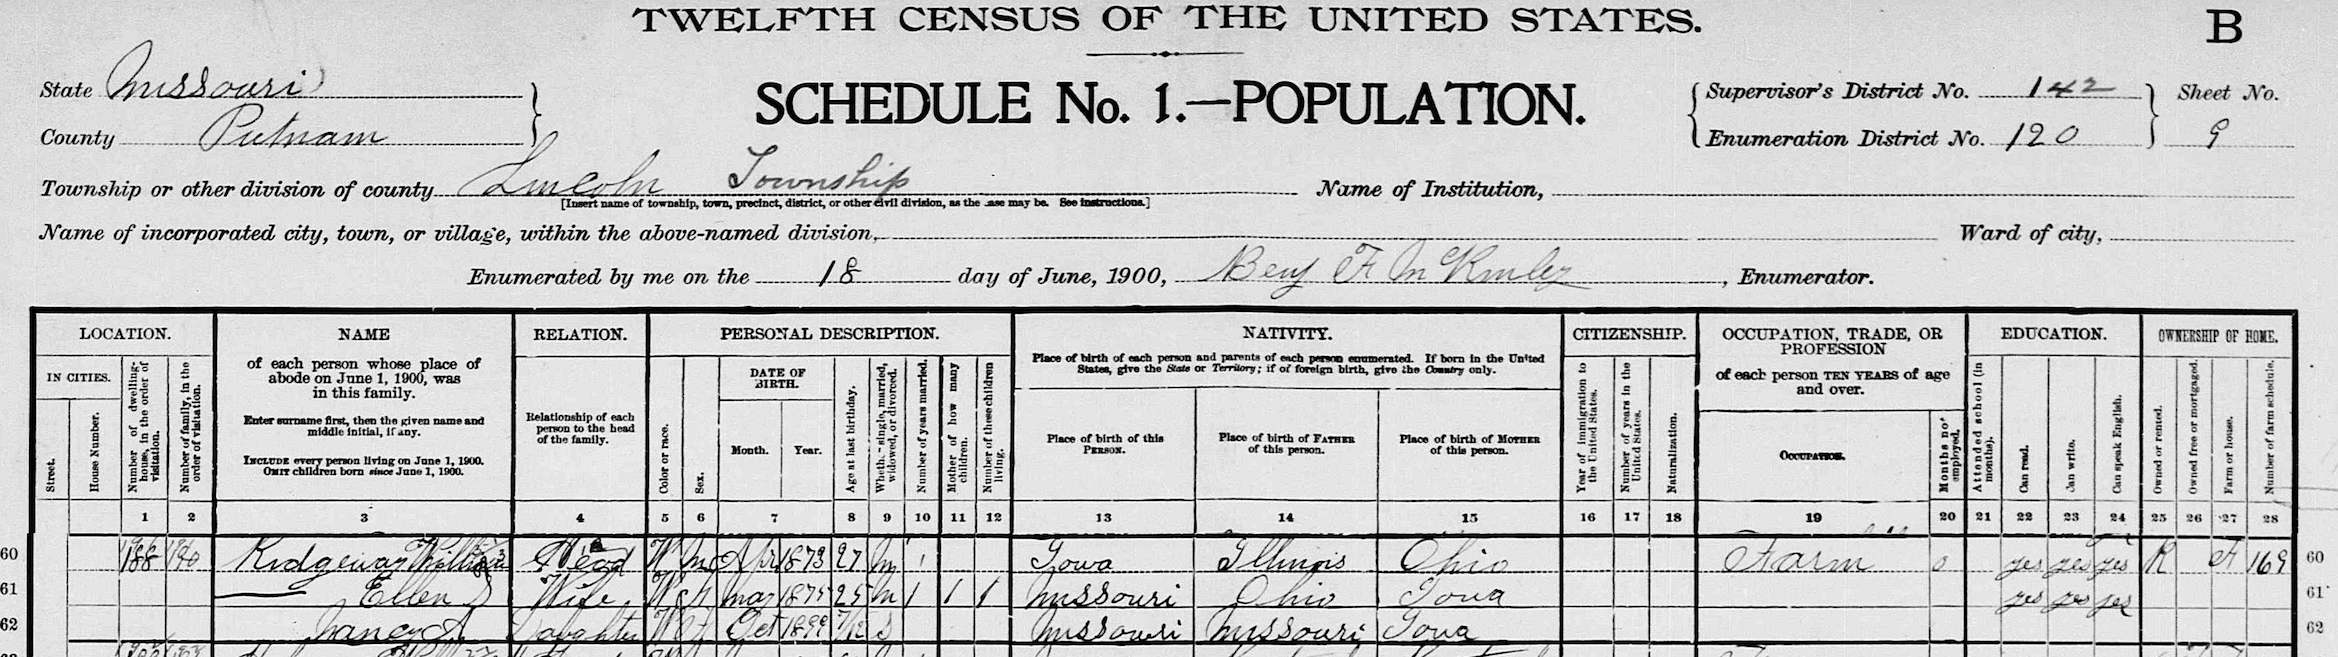 TWELFTH CENSUS OF THE UNITED STATES.
B
State Missouri
SCHEDULE No. 1.—POPULATION.
Supervisor's District No. 142
Sheet No.
County Putnam
Enumeration District No. 120
9
Township or other division of county Lincoln Township
Name of Institution,
[Insert name of township, town, precinct, district, or other civil division, as the case may be. See instructions.]
Name of incorporated city, town, or village, within the above-named division,
Ward of city,
Enumerated by me on the 18 day of June, 1900, Benj F , Enumerator.
LOCATION.
IN CITIES.
Street.
House Number.
Number of dwelling-house, in the order of visitation.
Number of family, in the order of visitation.
NAME
of each person whose place of
abode on June 1, 1900, was
in this family.
Enter surname first, then the given name and
middle initial, if any.
INCLUDE every person living on June 1, 1900.
OMIT children born since June 1, 1900.
RELATION.
Relationship of each
person to the head
of the family.
PERSONAL DESCRIPTION.
Color or race.
Sex.
DATE OF
BIRTH.
Month.
Year.
Age at last birthday.
Whether single, married, widowed, or divorced.
Number of years married.
Mother of how many children.
Number of these children living.
NATIVITY.
Place of birth of each person and parents of each person enumerated. If born in the United
States, give the State or Territory; if of foreign birth, give the Country only.
Place of birth of this
PERSON.
Place of birth of FATHER
of this person.
Place of birth of MOTHER
of this person.
CITIZENSHIP.
Year of immigration to the United States.
Number of years in the United States.
Naturalization.
OCCUPATION, TRADE, OR
PROFESSION
of each person TEN YEARS of age
and over.
OCCUPATION.
Months not employed.
EDUCATION.
Attended school (in months).
Can read.
Can write.
Can speak English.
OWNERSHIP OF HOME.
Owned or rented.
Owned free or mortgaged.
Farm or house.
Number of farm schedule.
1 2 3 4 5 6 7 8 9 10 11 12 13 14 15 16 17 18 19 20 21 22 23 24 25 26 27 28
60 188 190 Ridgeway Head W M Apr 1873 27 M 1 Iowa Illinois Ohio Farm 0 yes yes yes R F 169 60
61 Ellen Wife W F Mar 1875 25 M 1 1 1 Missouri Ohio Iowa yes yes yes 61
62 Nancy A Daughter W F Oct 1899 7/12 S Missouri Missouri Iowa 62